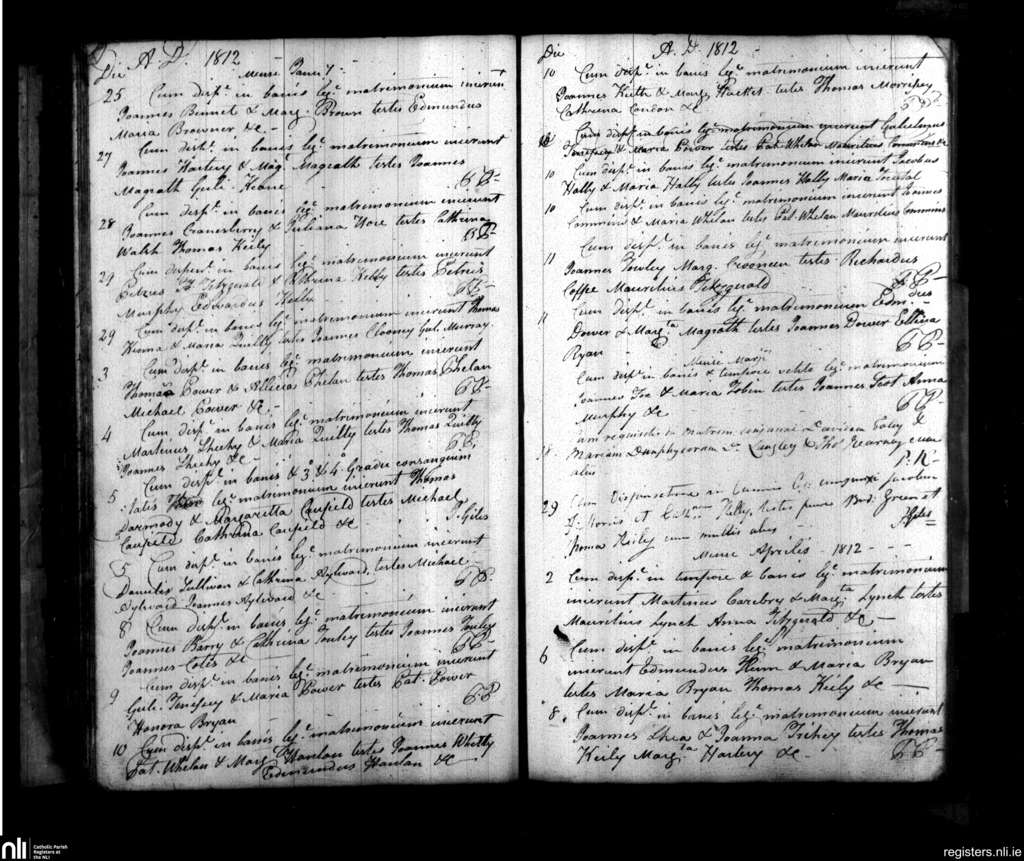 Die A. D. 1812
Mense Januij
25 Cum dispn. in banis legm. matrimonium inierunt
Joannes Bennet & Marg. Brown testes Edmundus
Maria Browner &c -
27 Cum dispn. in banis legm. matrimonium inierunt
Joannes Hartery & Magt. Magrath testes Joannes
Magrath Gul. Keane
28 Cum dispn. in banis legm. matrimonium inierunt
Joannes & Juliana Hore testes Cathrina
Walsh Thomas Keily
29 Cum dispen. in banis legm. matrimonium inierunt
Petrus Fitzgerald & Cathrina testes Petrus
Murphy Edwardus
29 Cum dispn. in banis legm. matrimonium inierunt Thomas
& Maria Quilty testes Joannes Clooney Gul. Murray
3 Cum dispn. in banis legm. matrimonium inierunt
Thomas Power & Allicia Phelan testes Thomas Phelan
Michael Power &c.
4 Cum dispn. in banis legm. matrimonium inierunt
Martinus Sheehy & Maria Quilty testes Thomas Quilty
Joannes Sheehy &c -
5 Cum dispn. in banis & 3o & 4o Gradu consanguini
tatis legm. matrimonium inierunt Thomas
Darmody & Margaretta Caufield testes Michael
Caufield Cathrina Caufield &c
P. Giles
5 Cum dispn. in banis legm. matrimonium inierunt
Danielis Sullivan & Cathrina Aylward testes Michael
Aylward Joannes Aylward &c
8 Cum dispn. in banis legm. matrimonium inierunt
Joannes Barry & Cathrina Fouley testes Joannes Fouley
Joannes Coles &c
9 Cum dispn. in banis legm. matrimonium inierunt
Gul. & Maria Power testes Pat. Power
Honora Bryan
10 Cum dispn. in banis legm. matrimonium inierunt
Pat. Whelan & Marg. Hanlan testes Joannes Whelly
Edmundus Hanlan &c
Die A. D. 1812
10 Cum dispn. in banis legm. matrimonium inierunt
Joannes Kieth & Marg. Hacket testes Thomas Morrissey
Cathrina Condon &c
Cum dispn. in banis legm. matrimonium inierunt Gulielmus
& Maria Power testes Pat. Whelan Mauritius Commins &c
10 Cum dispn. in banis legm. matrimonium inierunt Jacobus
Hally & Maria Hally testes Joannes Hally Maria
10 Cum dispn. in banis legm. matrimonium inierunt Joannes
Commins & Maria Whelan testes Pat. Whelan Mauritius Commins
11 Cum dispn. in banis legm. matrimonium inierunt
Joannes Fowley Marg. Crooneen testes Richardus
Coffee Mauritius Fitzgerald
11 Cum dispn. in banis legm. matrimonium Edm.
dus
Dower & Margta. Magrath testes Joannes Dower Ellena
Ryan
Mense Martij
Cum dispn. in banis & tempore velito legm. matrimonium
Joannes Fox & Maria Tobin testes Joannes Foot Anna
Murphy &c
18 Mariam Dunphy coram Langley & Tho. Kearney cum
aliis
P: K -
29 Cum Dispensatione in bannis
testes fuere Brd. Green et
Keily cum multis aliis
P Giles
Mense Aprilis 1812
2 Cum dispn. in tempore & banis legm. matrimonium
inierunt Martinus Carebry & Margta. Lynch testes
Mauritius Lynch Anna Fitzgerald &c -
6 Cum dispn. in banis legm. matrimonium
inierunt Edmundus Hurn & Maria Bryan
testes Maria Bryan Thomas Keily &c
8 Cum dispn. in banis legm. matrimonium inierunt
Joannes Shea & Joanna Fihey testes Thomas
Keily Margta. Hartery &c
nli Catholic Parish
Registers at
the NLI
registers.nli.ie